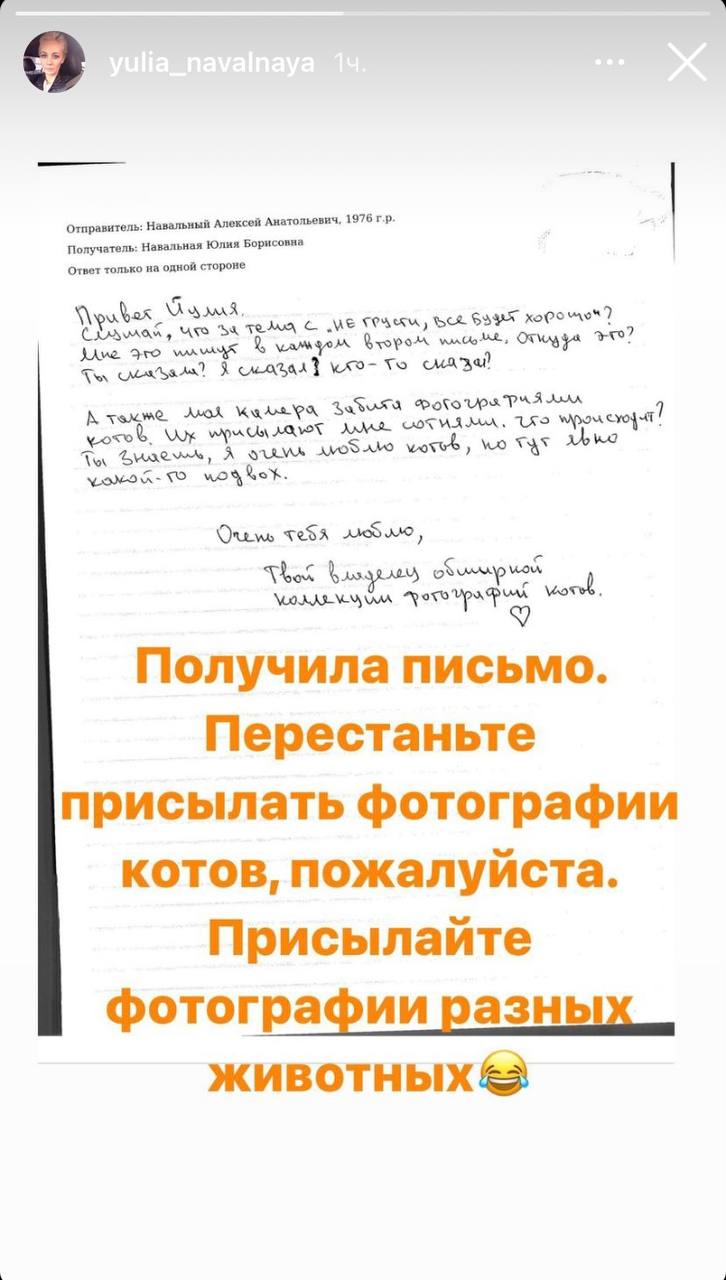 yulia_navalnaya 1ч.
Отправитель: Навальный Алексей Анатольевич, 1976 г.р.
Получатель: Навальная Юлия Борисовна
Ответ только на одной стороне
Привет Йулия.
Слушай, что за тема с „НЕ грусти, все будет хорошо"?
Мне это пишут в каждом втором письме. Откуда это?
Ты сказала? Я сказал? кто-то сказал?
А также моя камера забита фотографиями
котов. Их присылают мне сотнями. Что происходит?
Ты знаешь, я очень люблю котов, но тут явно
какой-то подвох.
Очень тебя люблю,
Твой владелец обширной
коллекции фотографий котов.
♡
Получила письмо.
Перестаньте
присылать фотографии
котов, пожалуйста.
Присылайте
фотографии разных
животных😂